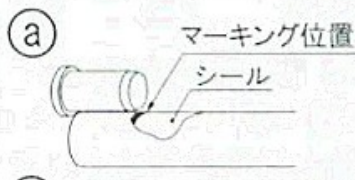 a
マーキング位置
シール